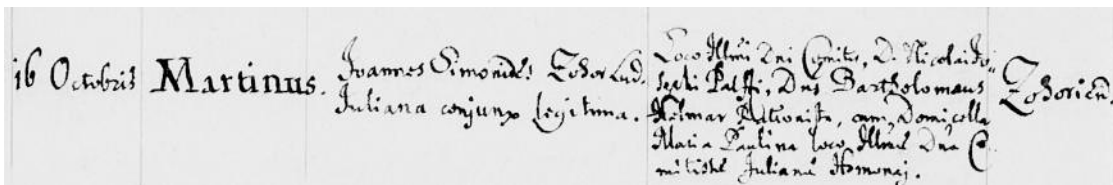 16 Octobris
Martinus.
Joannes Simonides Zohor Lud.
Juliana conjunx legitima.
Loco Illmi Dni Comitis, D. Nicolai Jo-
sephi Palffi, Dnus Bartholomæus
Kolmar Rationista, cum Domicella
Maria Paulina loco Illmæ Dnæ Co-
mitissæ Julianæ Homonaj.
Zohorien.